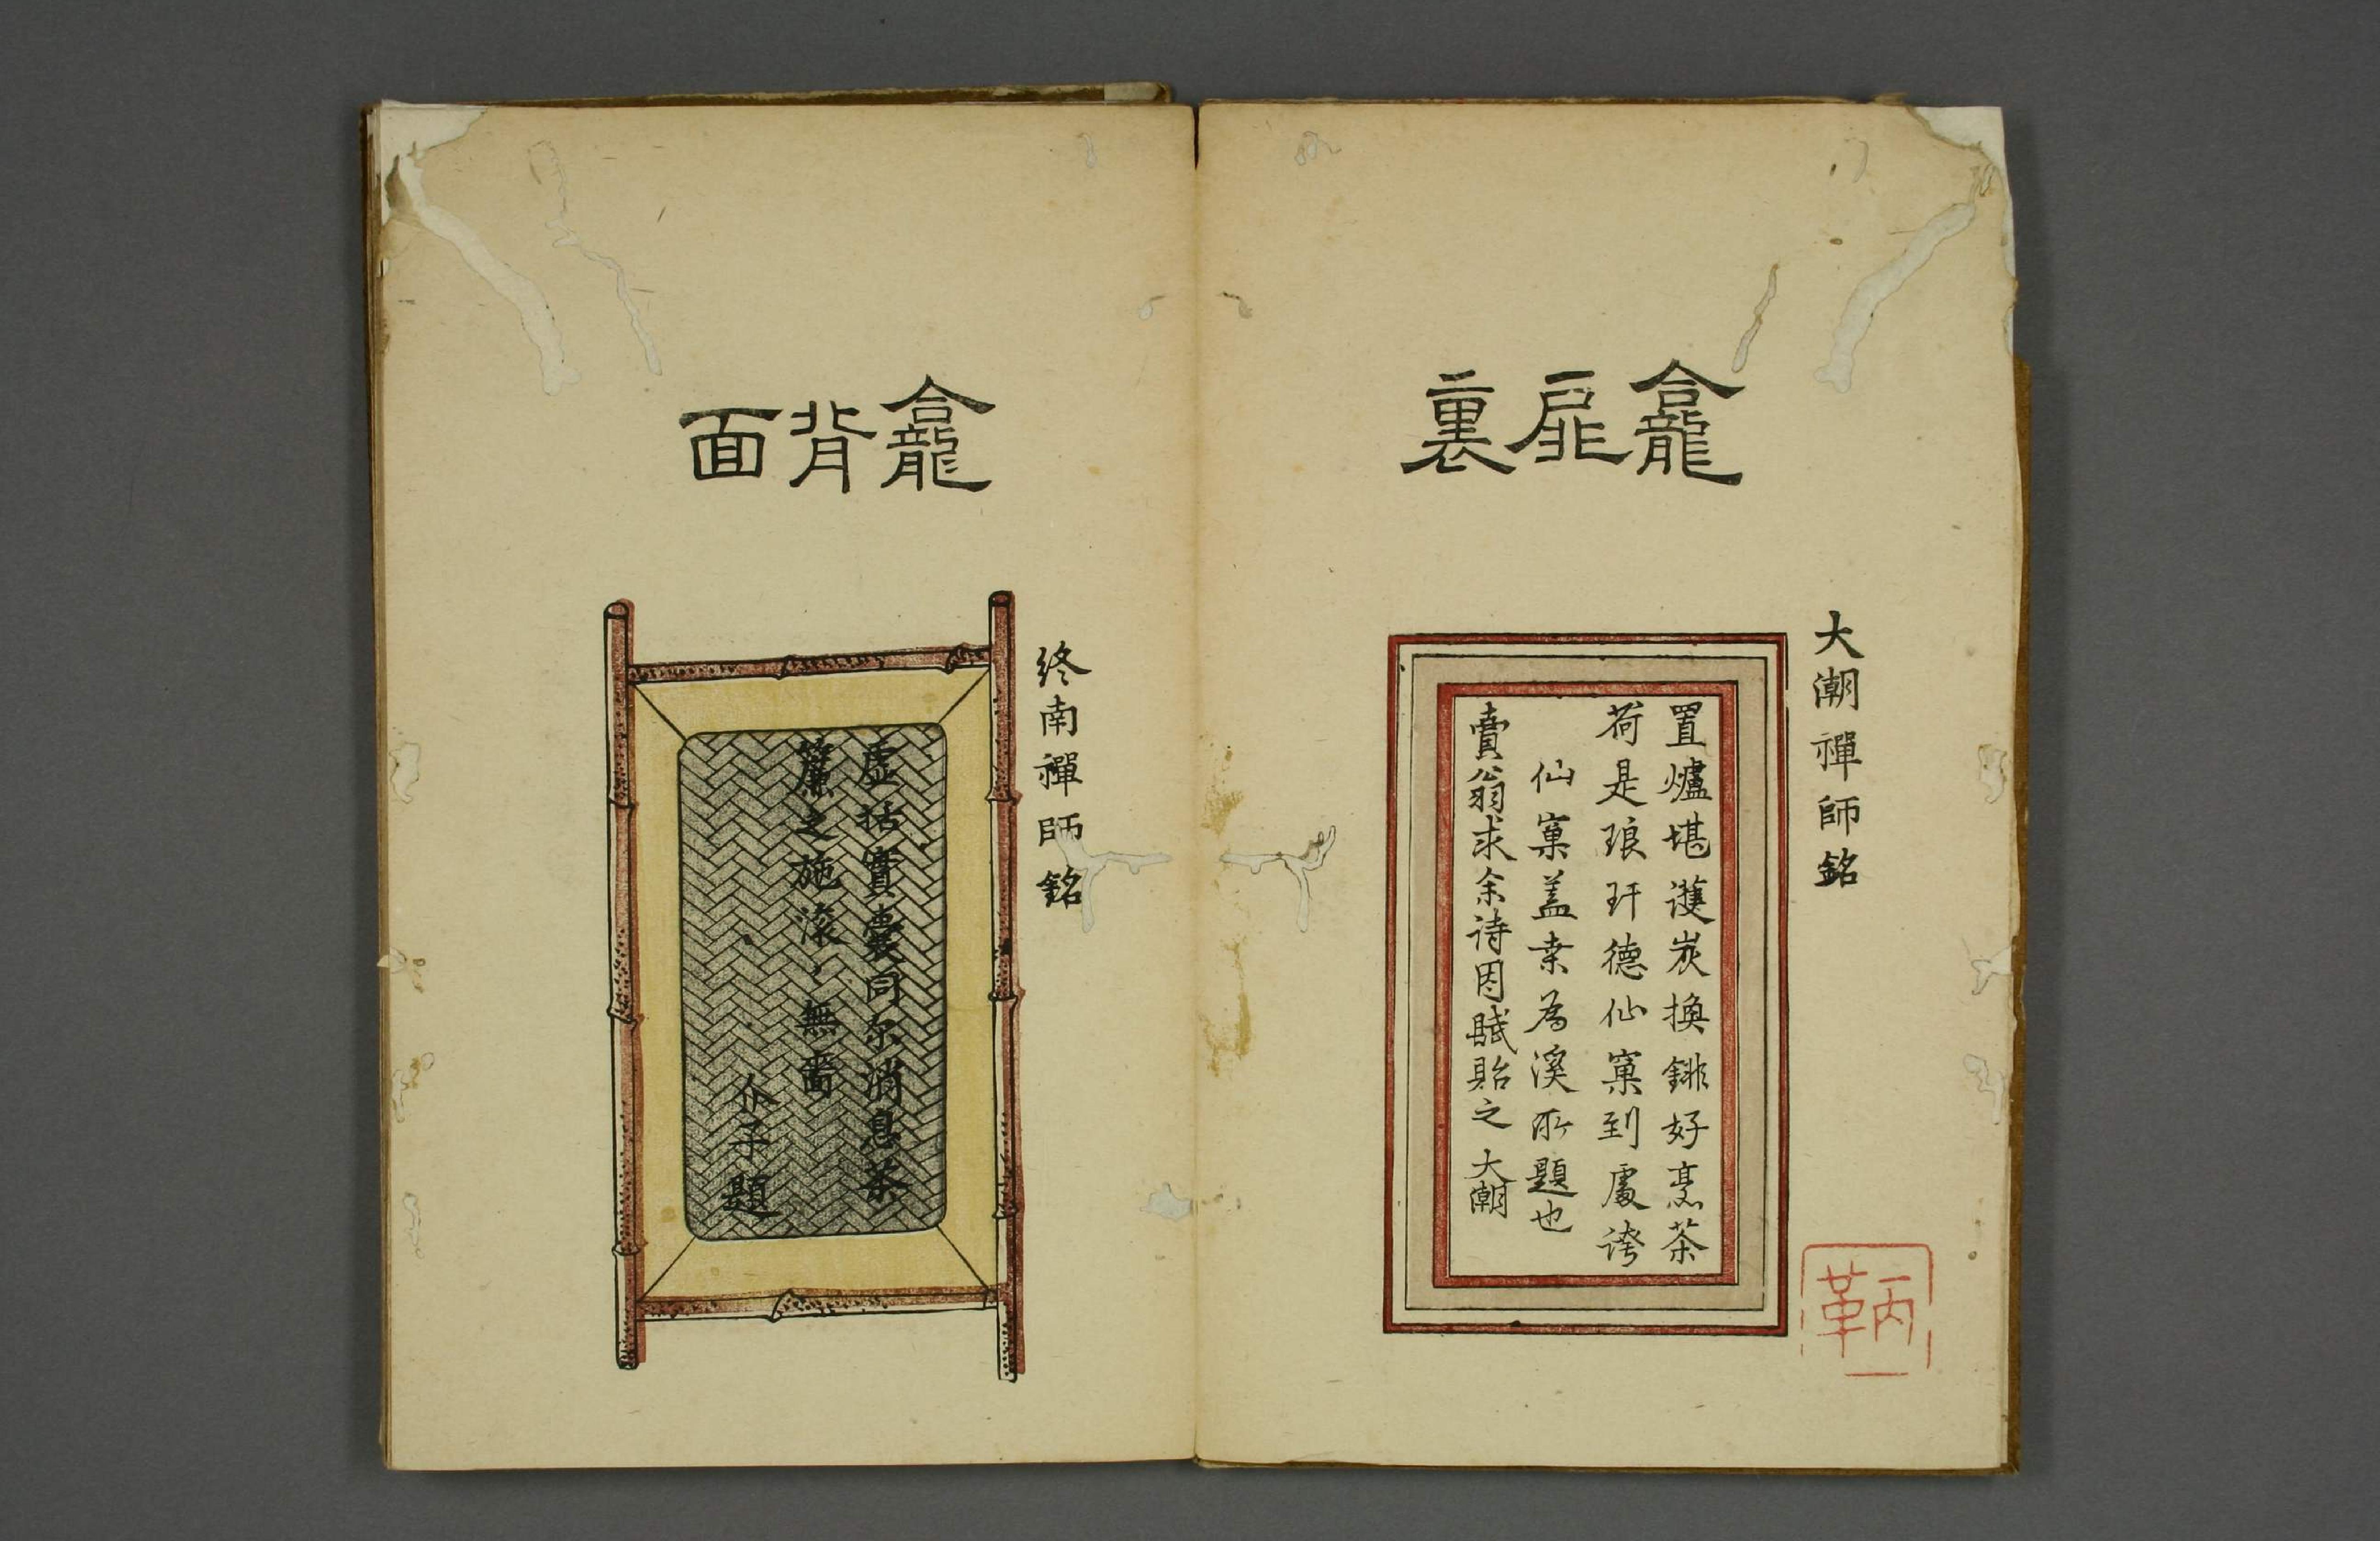 龕扉裏
大潮禪師銘
置爐堪護炭換銚好烹茶
荷是琅玕德仙窠到處誇
仙窠盖束為溪所題也
賣翁求余诗因賦貽之 大潮
丙
革
龕背面
終南禪師銘
虛括實囊同尔消息茶
簾之施滾〻無嗇
介子題